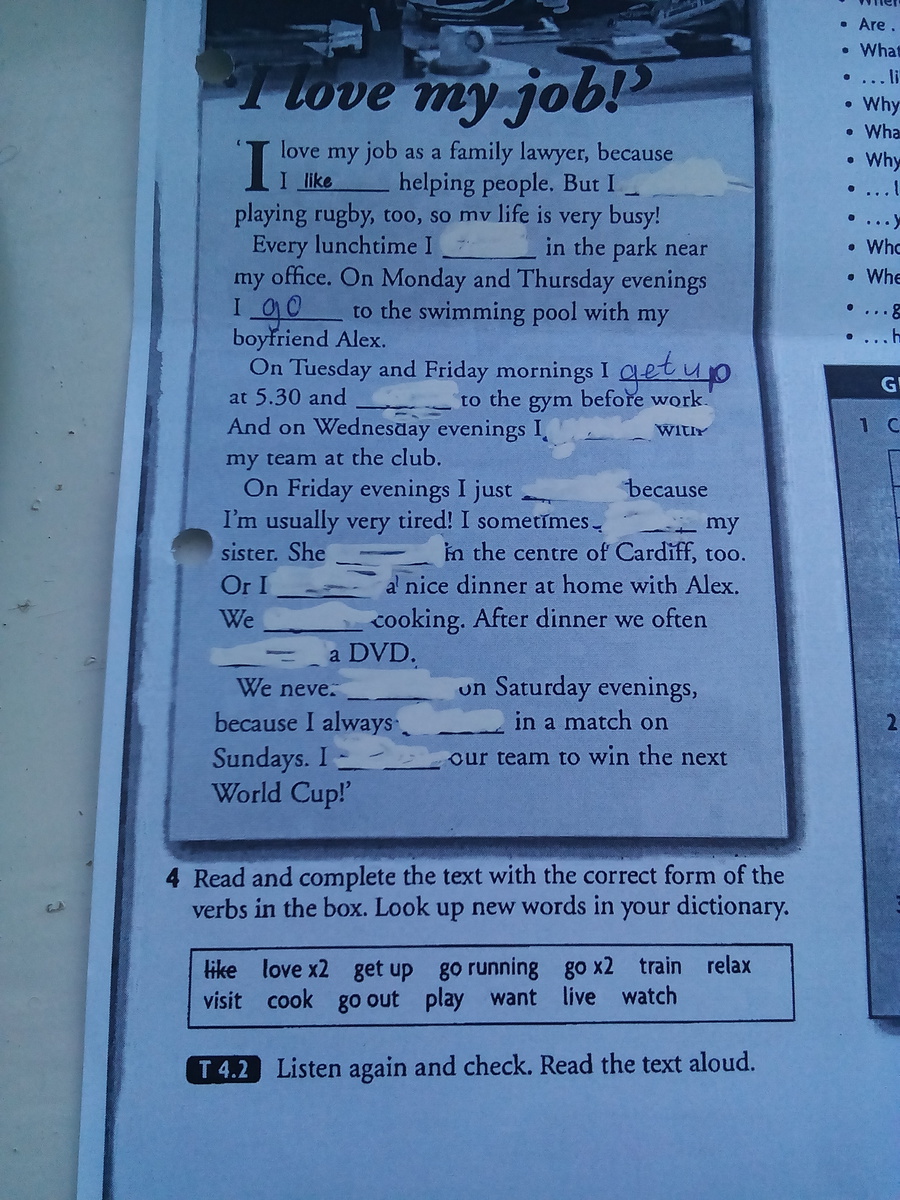 'I love my job!'
'I love my job as a family lawyer, because
I like helping people. But I
playing rugby, too, so my life is very busy!
Every lunchtime I in the park near
my office. On Monday and Thursday evenings
I go to the swimming pool with my
boyfriend Alex.
On Tuesday and Friday mornings I get up
at 5.30 and to the gym before work.
And on Wednesday evenings I with
my team at the club.
On Friday evenings I just because
I'm usually very tired! I sometimes my
sister. She in the centre of Cardiff, too.
Or I a nice dinner at home with Alex.
We cooking. After dinner we often
a DVD.
We never on Saturday evenings,
because I always in a match on
Sundays. I our team to win the next
World Cup!'
4 Read and complete the text with the correct form of the
verbs in the box. Look up new words in your dictionary.
like love x2 get up go running go x2 train relax
visit cook go out play want live watch
T 4.2 Listen again and check. Read the text aloud.
• Are .
• What
• ... li
• Why
• Wha
• Why
• ... l
• ... y
• Who
• Whe
• ... g
• ... h
G
1 C
2